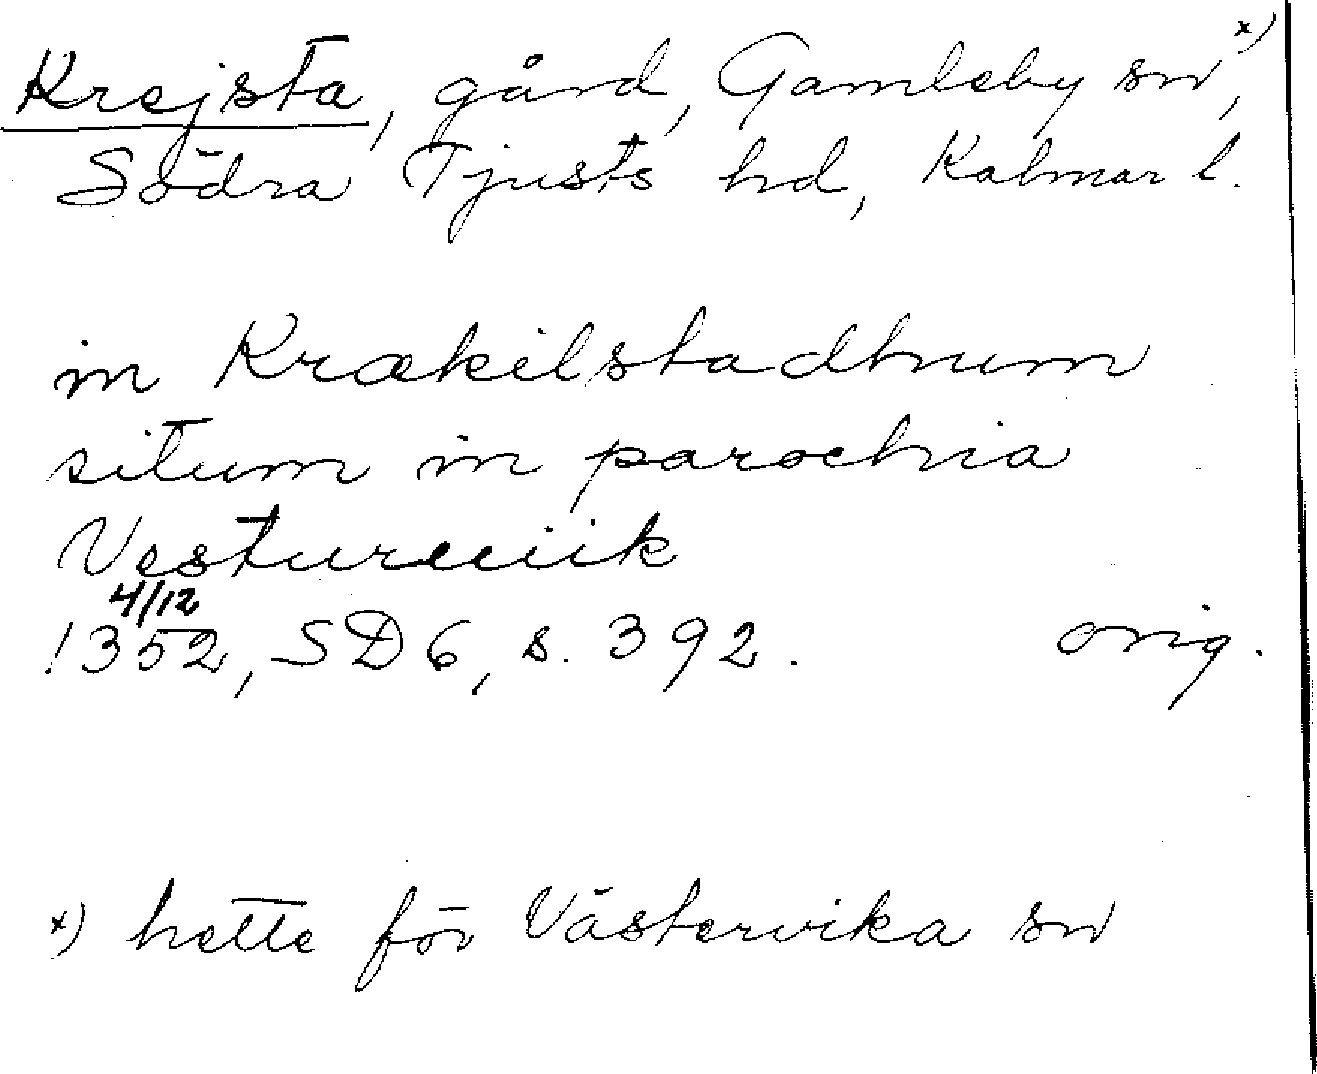 Krejsta, gård, Gamleby sn x),
Södra Tjusts hd, Kalmar l.
in Krækilstadhum
situm in parochia
Vestureuiik
4/12
1352, SD 6, s. 392. orig.
x) hette för Västervika sn